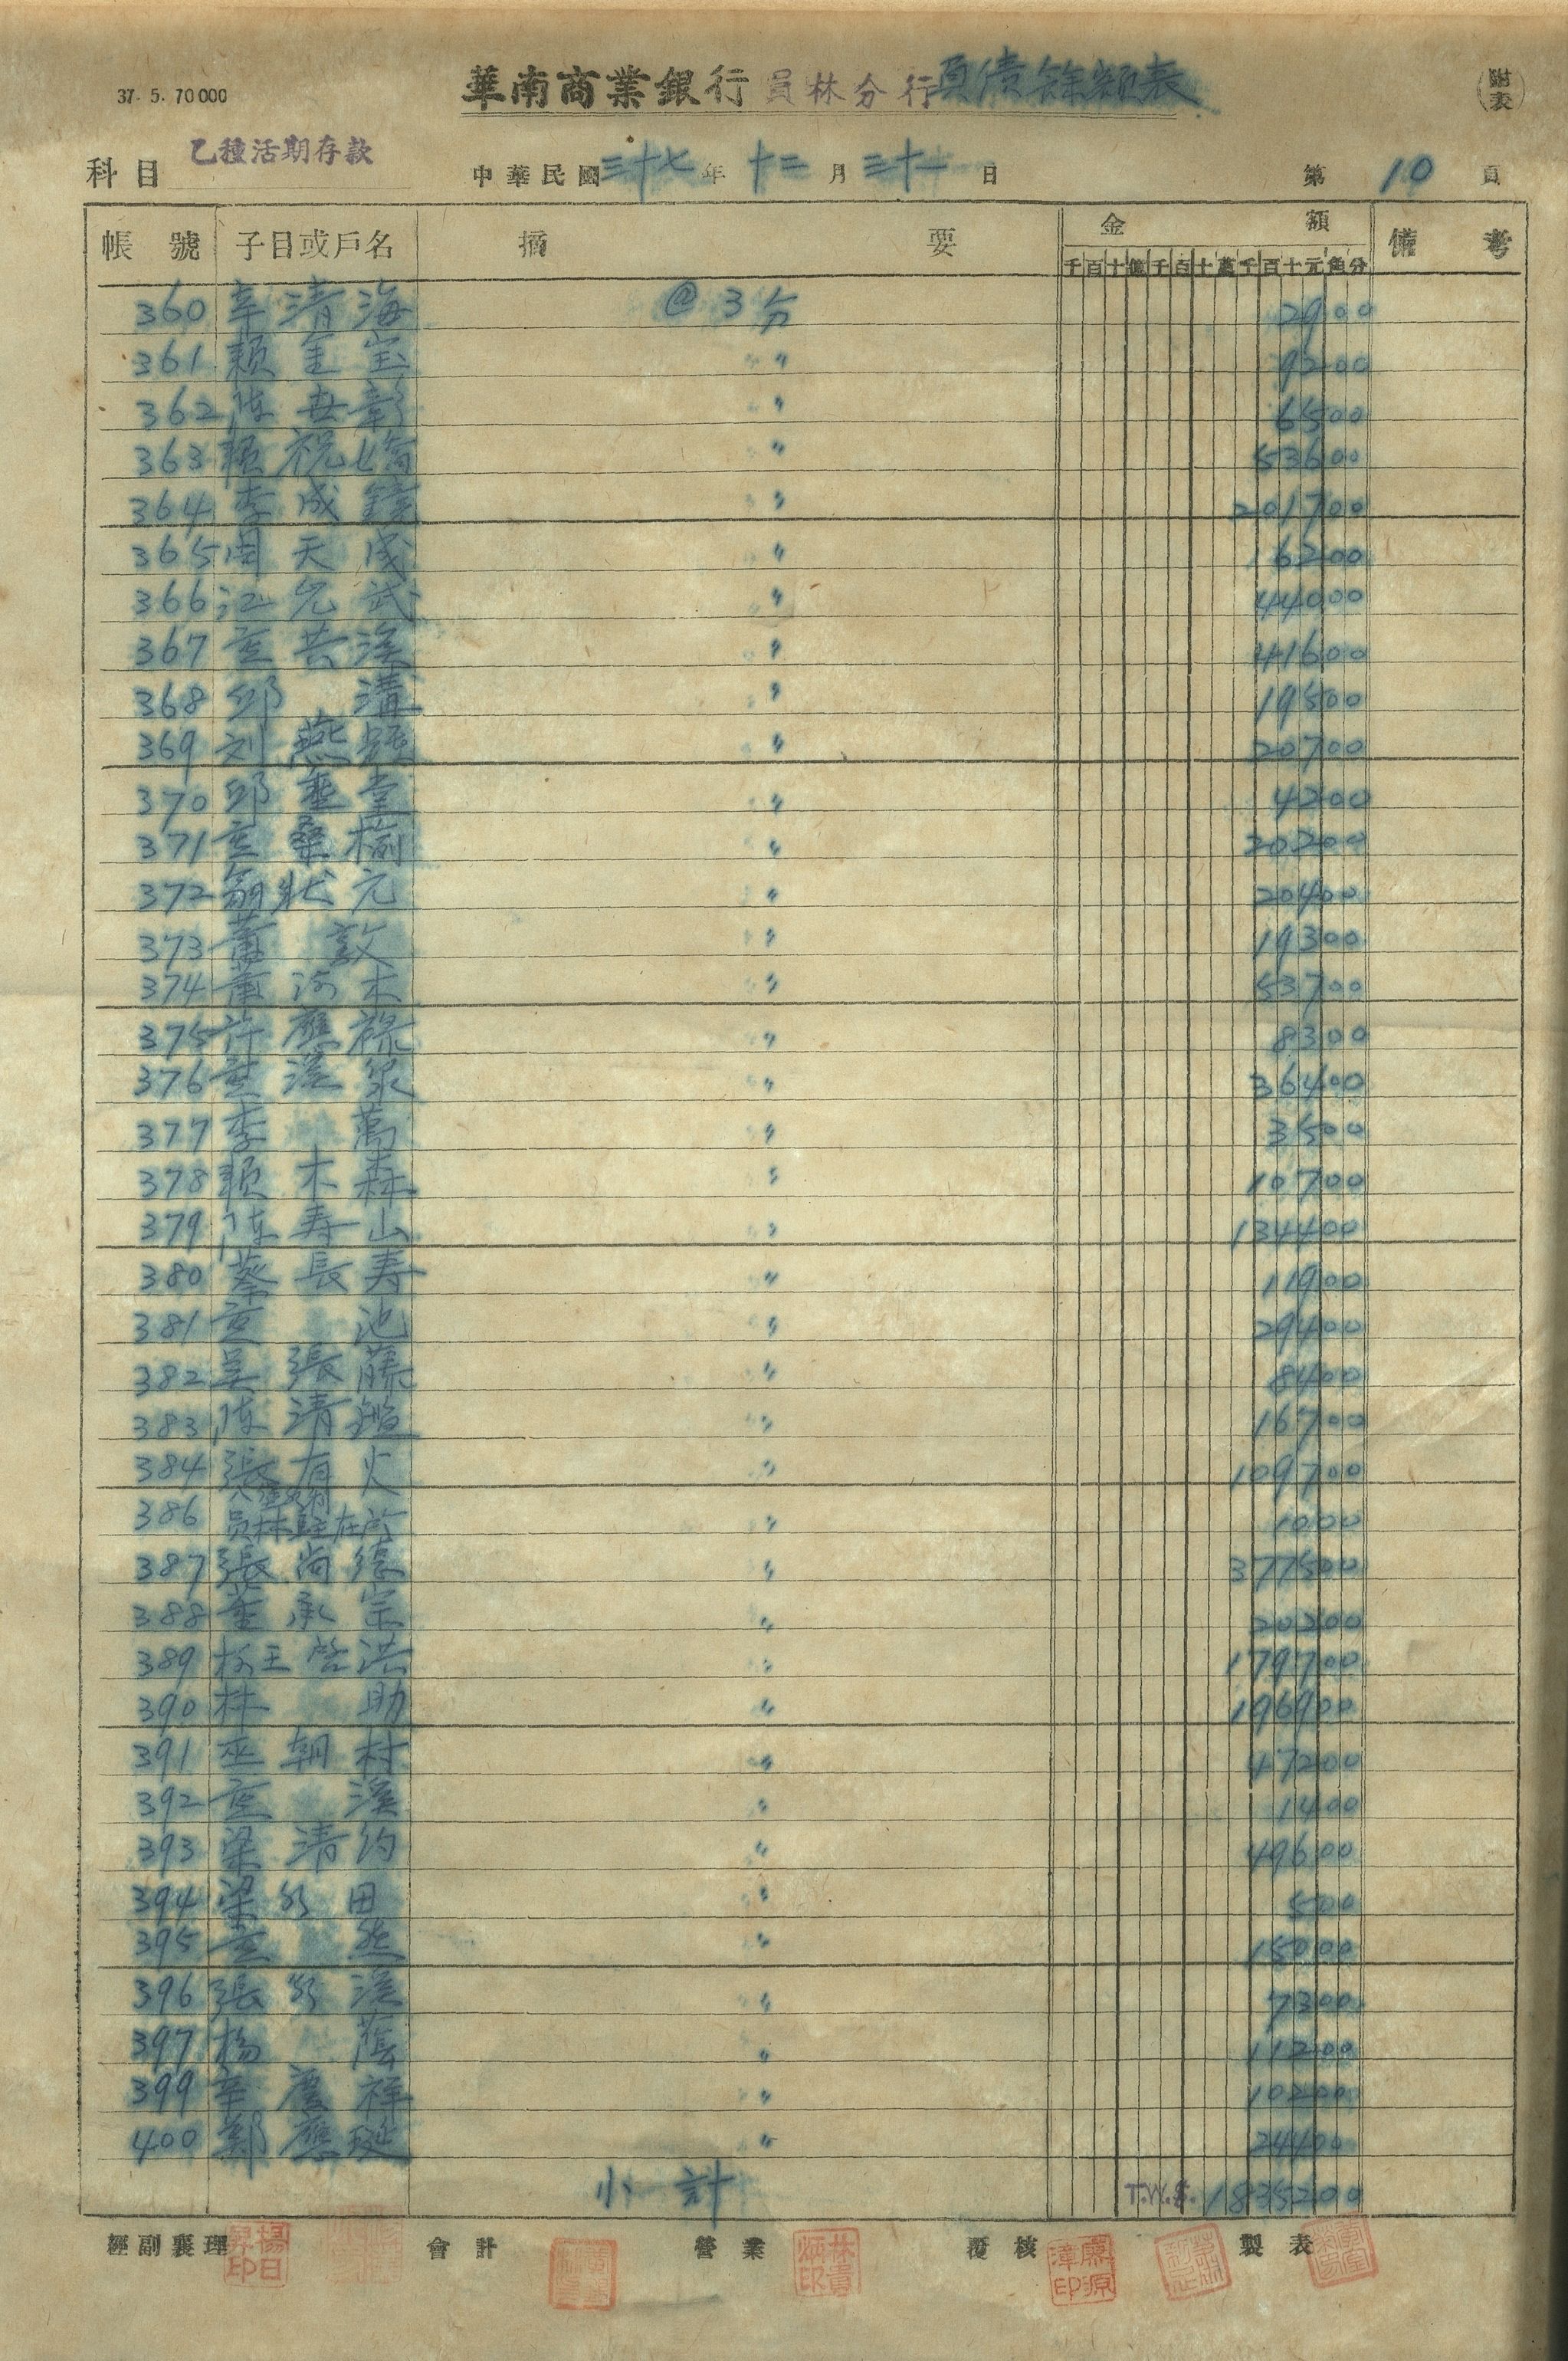 37. 5. 70000
華南商業銀行員林分行負債餘額表
附表
科目 乙種活期存款 中華民國三十七年十二月三十一日 第10頁
帳號 子目或戶名 摘要 金額 備考
千百十億千百十萬千百十元角分
360 辛清海 @3分 2900
361 賴金宝 〃 9200
362 陳世彰 〃 6500
363 賴祝嬌 〃 53600
364 李成鏡 〃 201700
365 周天成 〃 16200
366 江允武 〃 44000
367 黃共溪 〃 41600
368 邱溝 〃 19500
369 刘燕輝 〃 20700
370 邱垂堂 〃 4200
371 黃桑榆 〃 20200
372 翁狀元 〃 20400
373 蕭敦 〃 19300
374 蕭河木 〃 53700
375 許應祿 〃 8300
376 黃溪泉 〃 36400
377 李萬 〃 3500
378 賴木森 〃 10700
379 陳寿山 〃 134400
380 蔡長寿 〃 11900
381 黃池 〃 29400
382 吳張藤 〃 8400
383 陳清鐙 〃 16700
384 張有火 〃 109700
386 員林駐在所 〃 1000
387 張尚德 〃 377500
388 葉承宗 〃 20200
389 楊王啓洪 〃 179700
390 林助 〃 196900
391 巫朝村 〃 47200
392 黃溪 〃 1400
393 梁清約 〃 49600
394 梁水田 〃 500
395 黃然 〃 15000
396 張水溪 〃 7300
397 楊蔭 〃 11200
399 辛慶祥 〃 10200
400 鄭應珽 〃 24400
小計 T.W.$. 1835200
經副襄理 楊日昇印 會計 營業 林貴炳印 覆核 源漳印 製表